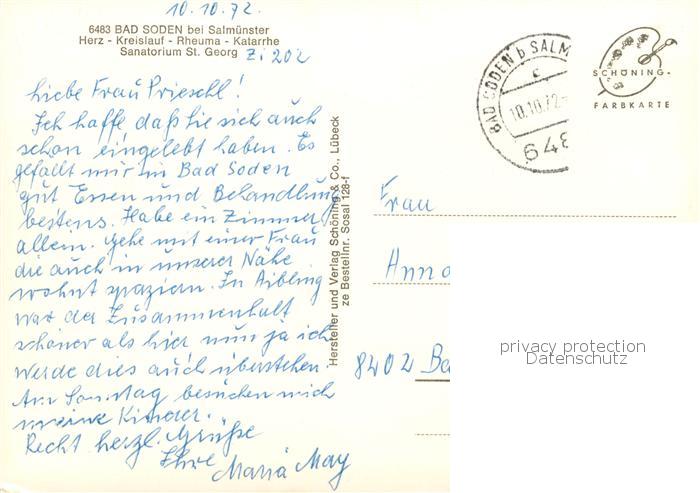 10.10.72.
6483 BAD SODEN bei Salmünster
Herz - Kreislauf - Rheuma - Katarrhe
Sanatorium St. Georg
Zi 202
Liebe Frau Prieschl!
Ich hoffe daß sie sich auch
schon eingelebt haben. Es
gefällt mir in Bad Soden
gut Essen und Behandlung
bestens. Habe ein Zimmer
allein. Gehe mit einer Frau
die auch in unserer Nähe
wohnt spaziern. In Aibling
war der Zusammenhalt
schöner als hier nun ja ich
werde dies auch überstehen.
Am Sonntag besuchen mich
meine Kinder.
Recht herzl. Grüße
Ihre Maria May
Hersteller und Verlag Schöning & Co., Lübeck
ze Bestellnr. Sosal 128-f
BAD SODEN b SALM
c
10.10.72-
649
SCHÖNING-
FARBKARTE
Frau
Anna
8402 Ba
privacy protection
Datenschutz